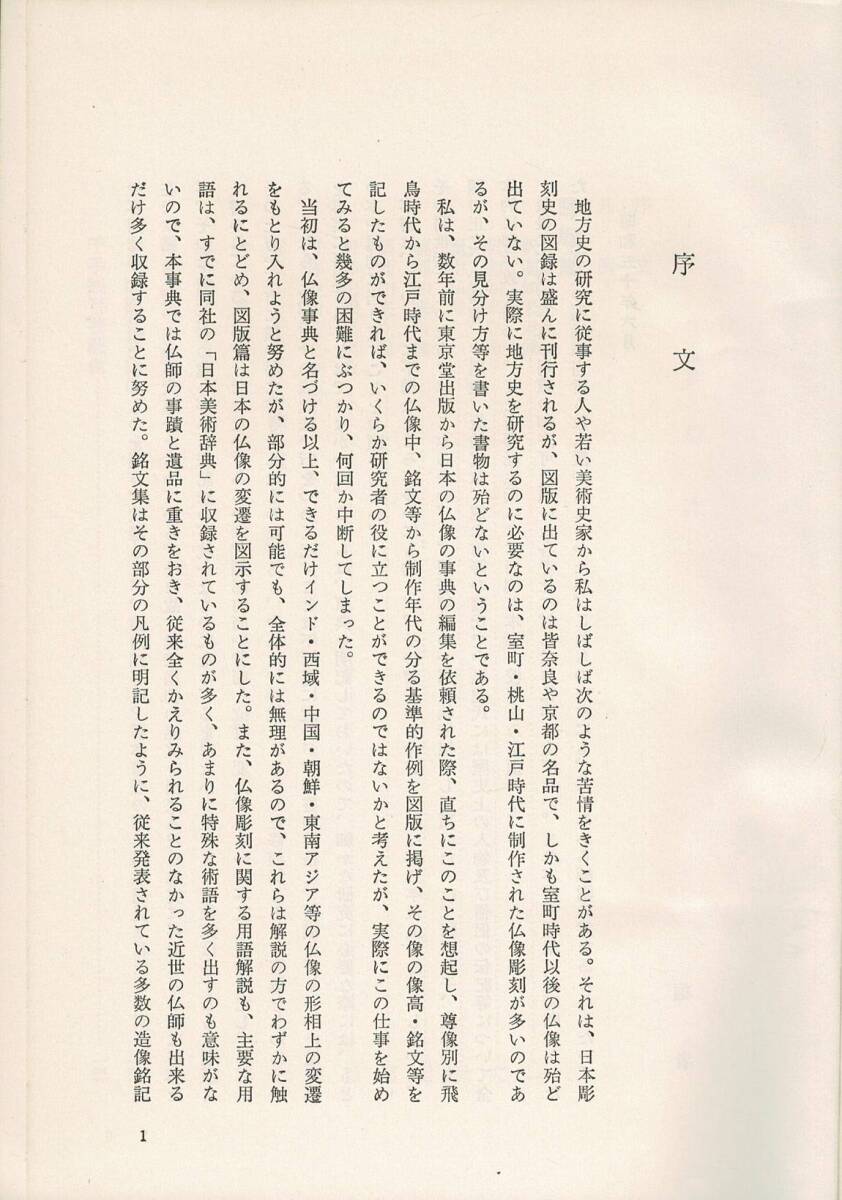 序文
地方史の研究に従事する人や若い美術史家から私はしばしば次のような苦情をきくことがある。それは、日本彫
刻史の図録は盛んに刊行されるが、図版に出ているのは皆奈良や京都の名品で、しかも室町時代以後の仏像は殆ど
出ていない。実際に地方史を研究するのに必要なのは、室町・桃山・江戸時代に制作された仏像彫刻が多いのであ
るが、その見分け方等を書いた書物は殆どないということである。
私は、数年前に東京堂出版から日本の仏像の事典の編集を依頼された際、直ちにこのことを想起し、尊像別に飛
鳥時代から江戸時代までの仏像中、銘文等から制作年代の分る基準的作例を図版に掲げ、その像の像高・銘文等を
記したものができれば、いくらか研究者の役に立つことができるのではないかと考えたが、実際にこの仕事を始め
てみると幾多の困難にぶつかり、何回か中断してしまった。
当初は、仏像事典と名づける以上、できるだけインド・西域・中国・朝鮮・東南アジア等の仏像の形相上の変遷
をもとり入れようと努めたが、部分的には可能でも、全体的には無理があるので、これらは解説の方でわずかに触
れるにとどめ、図版篇は日本の仏像の変遷を図示することにした。また、仏像彫刻に関する用語解説も、主要な用
語は、すでに同社の「日本美術辞典」に収録されているものが多く、あまりに特殊な術語を多く出すのも意味がな
いので、本事典では仏師の事蹟と遺品に重きをおき、従来全くかえりみられることのなかった近世の仏師も出来る
だけ多く収録することに努めた。銘文集はその部分の凡例に明記したように、従来発表されている多数の造像銘記
1